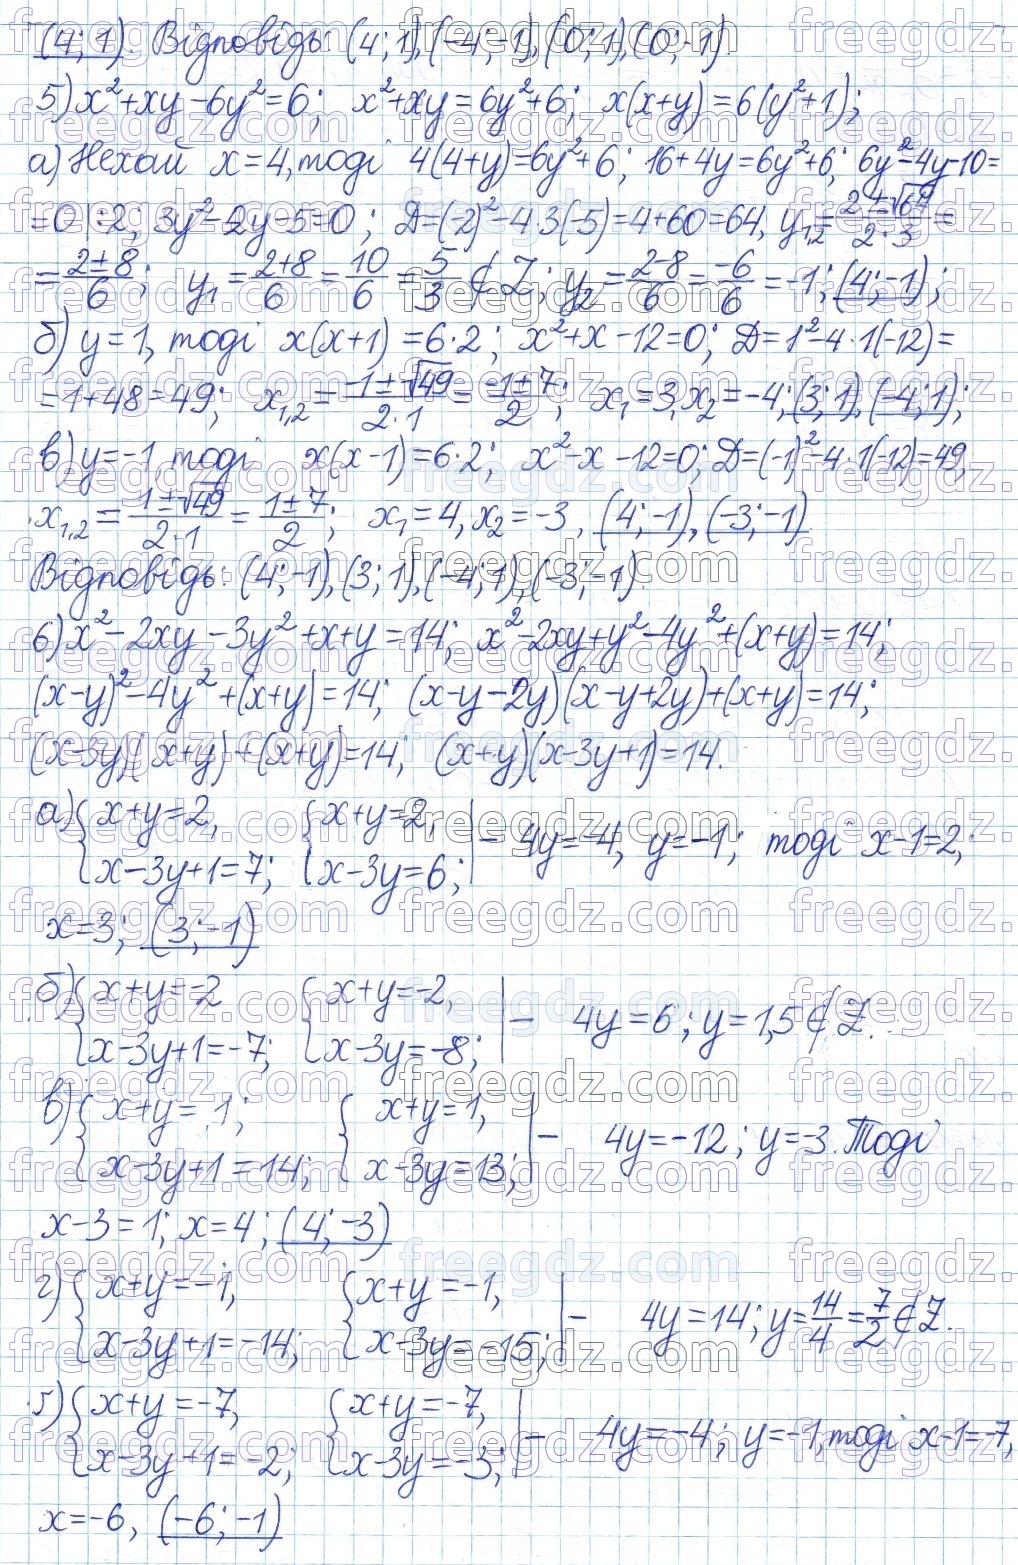 (4; 1). Відповідь: (4; 1), (-4; -1), (0; 1), (0; -1)
5) x²+xy-6y²=6; x²+xy=6y²+6; x(x+y)=6(y²+1);
а) Нехай x=4, тоді 4(4+y)=6y²+6; 16+4y=6y²+6; 6y²-4y-10=
=0 |:2; 3y²-2y-5=0; Д=(-2)²-4·3(-5)=4+60=64, y₁,₂=(2±√64)/(2·3)=
=(2±8)/6; y₁=(2+8)/6=10/6=5/3∉Z; y₂=(2-8)/6=-6/6=-1; (4; -1);
б) y=1, тоді x(x+1)=6·2; x²+x-12=0; Д=1²-4·1(-12)=
=1+48=49; x₁,₂=(-1±√49)/(2·1)=(-1±7)/2; x₁=3, x₂=-4; (3; 1), (-4; 1);
в) y=-1 тоді x(x-1)=6·2; x²-x-12=0; Д=(-1)²-4·1(-12)=49,
x₁,₂=(1±√49)/(2·1)=(1±7)/2; x₁=4, x₂=-3, (4; -1), (-3; -1)
Відповідь: (4; -1), (3; 1), (-4; 1), (-3; -1)
6) x²-2xy-3y²+x+y=14; x²-2xy+y²-4y²+(x+y)=14;
(x-y)²-4y²+(x+y)=14; (x-y-2y)(x-y+2y)+(x+y)=14;
(x-3y)(x+y)+(x+y)=14; (x+y)(x-3y+1)=14.
а) {x+y=2, {x+y=2, |- 4y=-4, y=-1; тоді x-1=2;
{x-3y+1=7; {x-3y=6;
x=3; (3; -1)
б) {x+y=-2 {x+y=-2, |- 4y=6; y=1,5∉Z.
{x-3y+1=-7; {x-3y=-8;
в) {x+y=1; {x+y=1, |- 4y=-12; y=-3. Тоді
{x-3y+1=14; {x-3y=13;
x-3=1; x=4; (4; -3)
г) {x+y=-1, {x+y=-1, |- 4y=14; y=14/4=7/2∉Z.
{x-3y+1=-14; {x-3y=-15;
ґ) {x+y=-7, {x+y=-7, |- 4y=-4; y=-1, тоді x-1=-7,
{x-3y+1=-2; {x-3y=-3;
x=-6, (-6; -1)